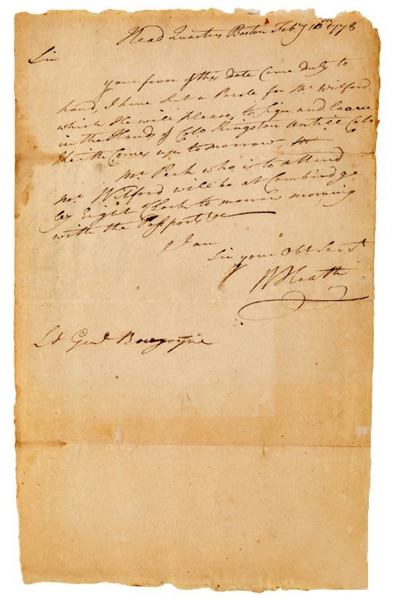 Head Quarters Boston Feby 10th 1778
Sir
your favor of this date came duly to
hand, I have sent a Parole for Mr Wilford
which He will please to Sign and leave
in the Hands of Colo Kingston untill Colo
Keith Comes up to morrow
Mr Peck who is to attend
Mr Wilford will be at Cambridge
by Eight oClock to morrow morning
with the Passport &c
I am
Sir your Obt Servt
W Heath
Lt Genl Burgoyne